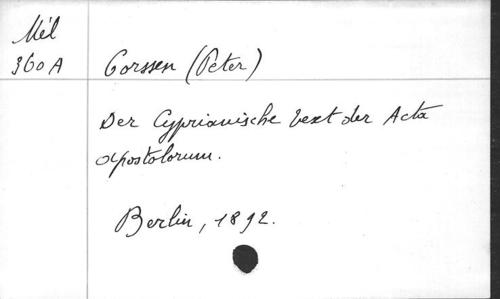 Mél
360 A Corssen (Peter)
Der Cyprianische text der Acta
apostolorum.
Berlin, 1892.